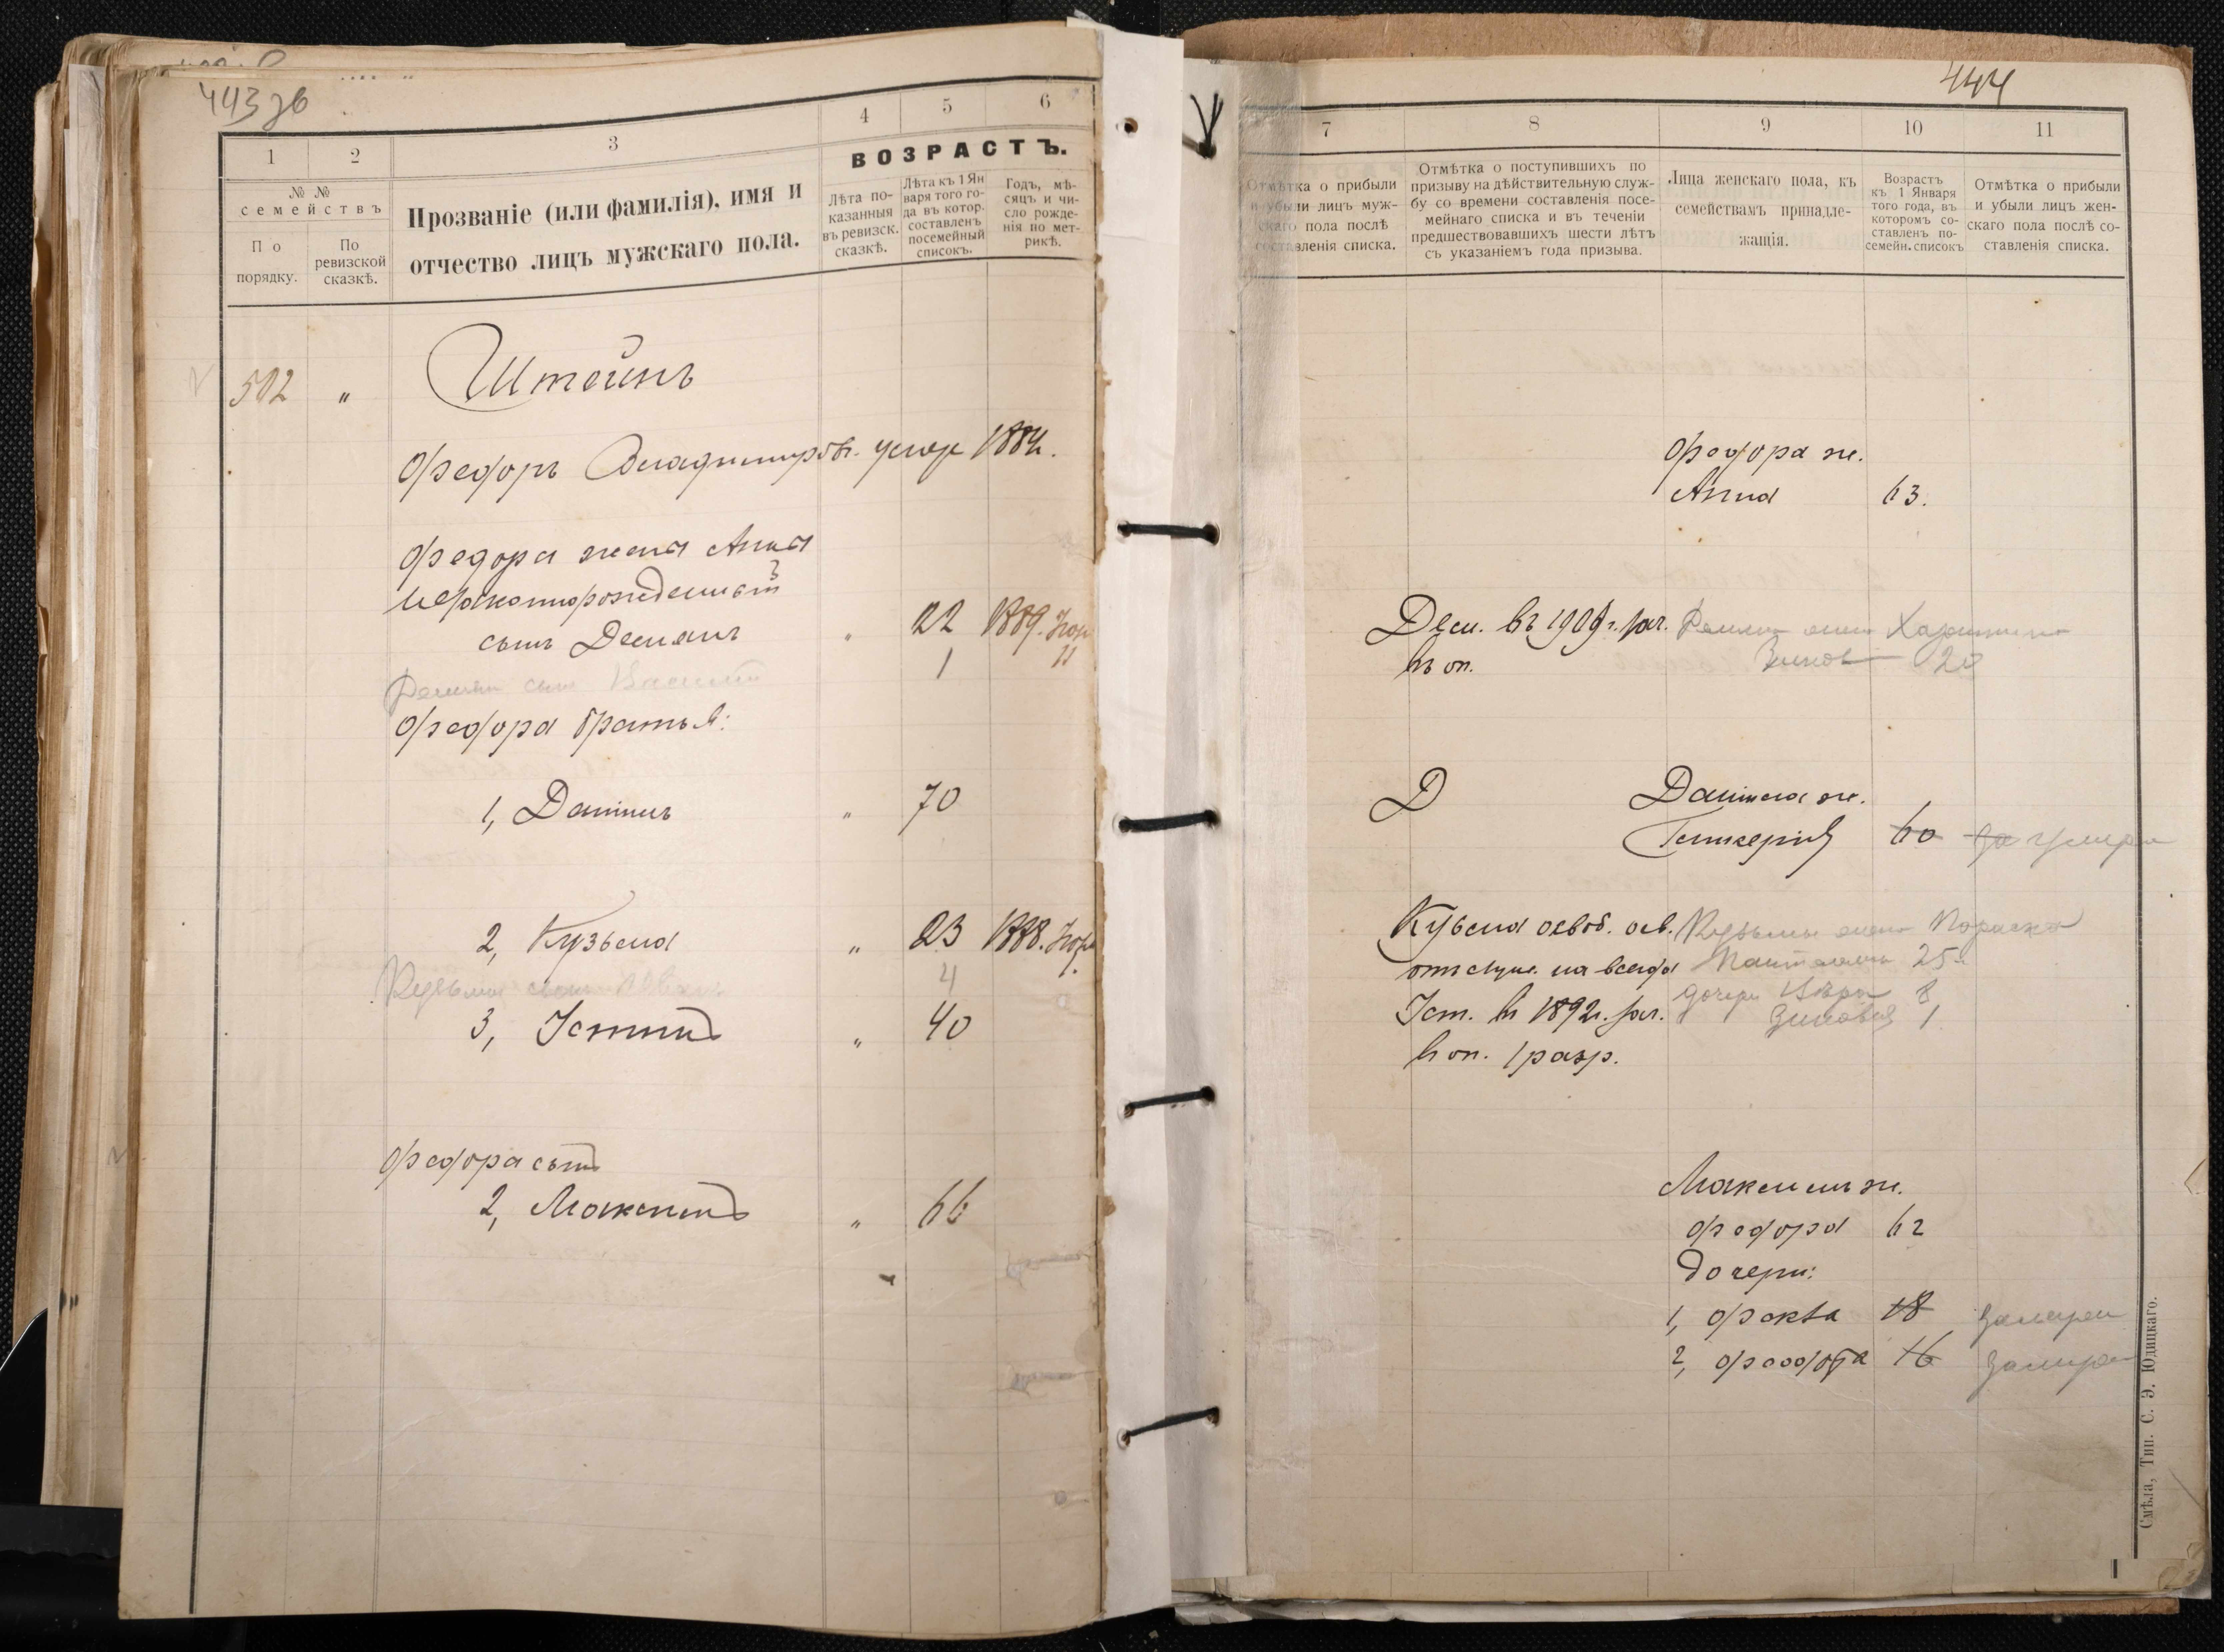 443 зв
1
2
3
4
5
6
ВОЗРАСТЪ.
№ №
семействъ
По
порядку.
По
ревизской
сказкѣ.
Прозваніе (или фамилія), имя и
отчество лицъ мужскаго пола.
Лѣта по-
казанныя
въ ревизск.
сказкѣ.
Лѣта къ 1 Ян
варя того го-
да въ котор.
составленъ
посемейный
списокъ.
Годъ, мѣ-
сяцъ и чи-
сло рожде-
нія по мет-
рикѣ.
502 "
Штейнъ
Федоръ Владимировъ. умер 1884.
Федора жена Анна
незаконнорожденный
сынъ Демянъ " 22 1889.
Демьяна сын Василій 1 11
Федора братья:
1, Даніилъ " 70
2, Кузьма " 23 1888.
Кузьмы сынъ Иванъ 4
3, Устинъ " 40
Федора сынъ
2, Максимъ " 66
444
7
8
9
10
11
Отмѣтка о прибыли
и убыли лицъ муж-
скаго пола послѣ
составленія списка.
Отмѣтка о поступившихъ по
призыву на дѣйствительную служ-
бу со времени составленія посе-
мейнаго списка и въ теченіи
предшествовавшихъ шести лѣтъ
съ указаніемъ года призыва.
Лица женскаго пола, къ
семействамъ принадле-
жащія.
Возрастъ
къ 1 Января
того года, въ
которомъ со-
ставленъ по-
семейн. списокъ
Отмѣтка о прибыли
и убыли лицъ жен-
скаго пола послѣ со-
ставленія списка.
Федора ж.
Анна 63.
Дем. въ 1909 г. зач. Демьяна жена Харитина
въ оп. 20
Д Даніила ж.
Гликерія 60 умерла
Кузьма освоб. от. Кузьмы жена Параска
от служ. на всегда 25
Уст. въ 1892 г. зач. дочери Вѣра 8
Зиновія 1
в оп. 1 разр.
Максима ж.
Федора 62
дочери:
1, Фекла 18
2, Федора 16
Смѣла, Тип. С. Э. Юдицкаго.